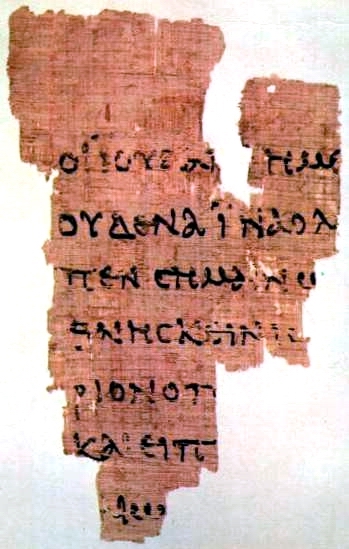 ΟΙ ΪΟΥΔΑΙ ΗΜΕ
ΟΥΔΕΝΑ ΪΝΑ Ο ΛΟ
ΠΕΝ CΗΜΑΙΝΩ
ΘΝΗCΚΕΙΝ ΙC
ΡΙΟΝ Ο Π
ΚΑΙ ΕΙΠ